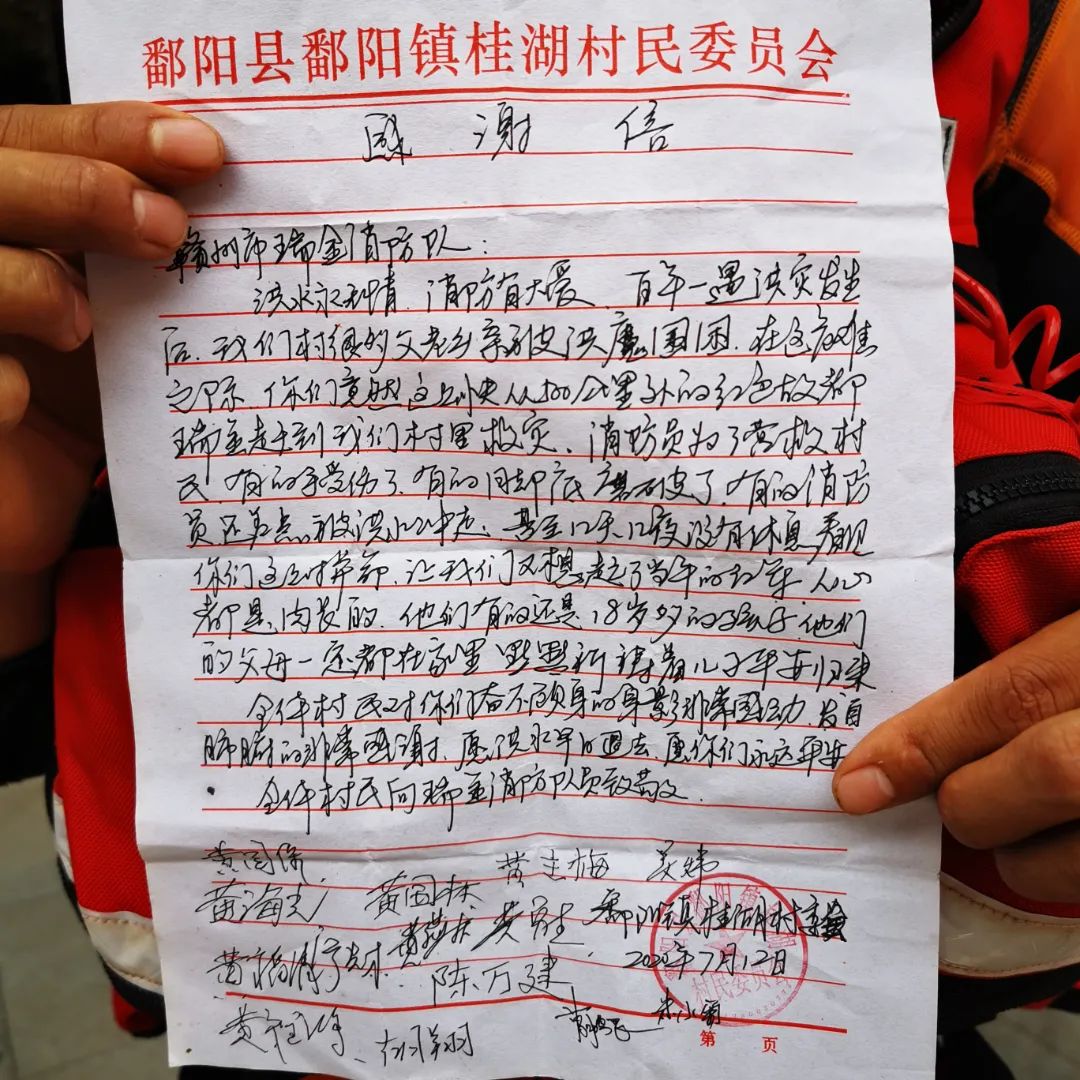 鄱阳县鄱阳镇桂湖村民委员会
感谢信
赣州市瑞金消防队：
洪水永无情，消防有大爱，百年一遇洪灾发生
后，我们村很多父老乡亲被洪魔围困，在这危难
之际，你们竟然这么快从500公里外的红色故都
瑞金赶到我们村里救灾，消防员为了营救村
民，有的手受伤了，有的同脚底磨破了，有的消防
员还差点被洪水冲走，甚至几天几夜没有休息，看见
你们这么对革命，让我们又想起了当年的红军，人心
都是肉长的，他们有的还是18岁多的孩子，他们
的父母一定都在家里默默祈祷着儿子平安归来
全体村民对你们奋不顾身的身影非常感动，发自
肺腑的非常感谢，愿洪水早日退去，愿你们永远平安
全体村民向瑞金消防队员致敬
黄国保 黄志梅
黄海 黄国林
鄱阳镇桂湖村委会
陈万建
2020年7月12日
胡翔
村民委员会
第 页